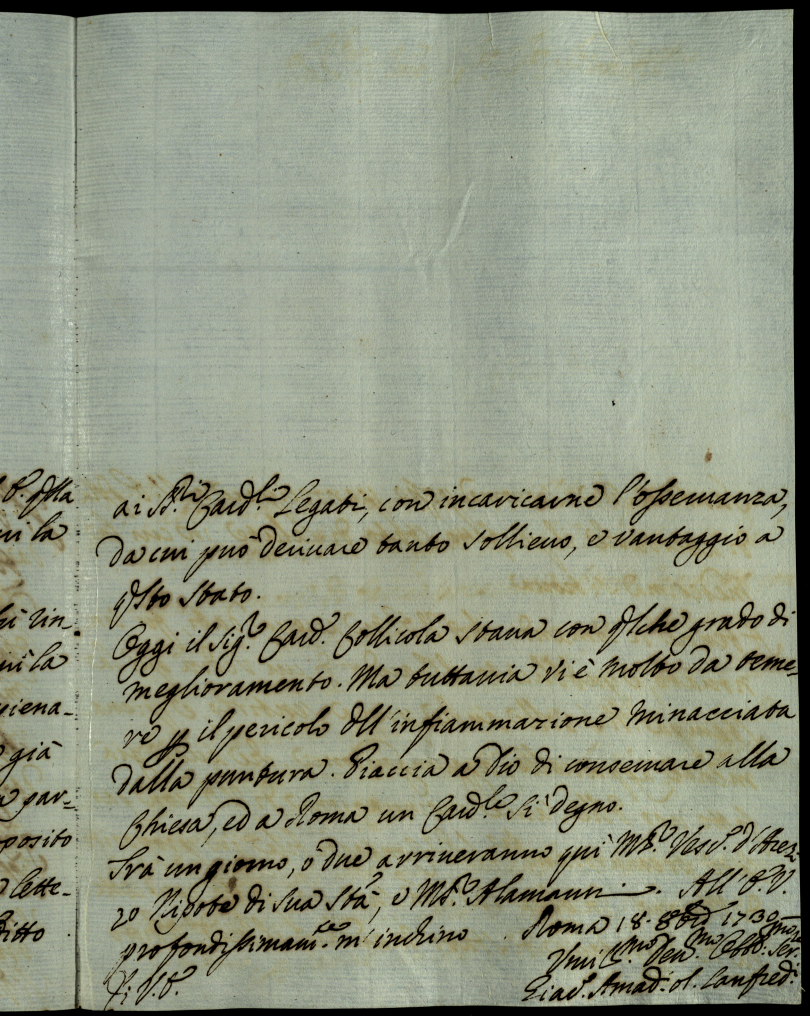 ai SS.ri Card.li Legati, con incaricarne l'osservanza,
da cui può derivare tanto sollievo, e vantaggio a
qsto stato.
Oggi il Sig.r Card. Collicola stava con qlche grado di
meglioramento. Ma tuttavia vi è molto da teme-
re p il pericolo dll'infiammazione minacciata
dalla puntura. Piaccia a Dio di conservare alla
Chiesa, ed a Roma un Card.le sì degno.
Frà un giorno, o due arriveranno quì Ms.r Vesc.o d'Arez-
zo Nipote di sua Stà, e Ms.r Alamanni. All' V.
profondissimam.te m'inchino. Roma 18. 8bre 1730
Di V.
Umil.mo Dev.mo Obb.mo Ser.
Giac.o Amad. ol. Lanfred.i
qsta
la
rin
la
piena-
già
par-
oposito
lette-
ditto